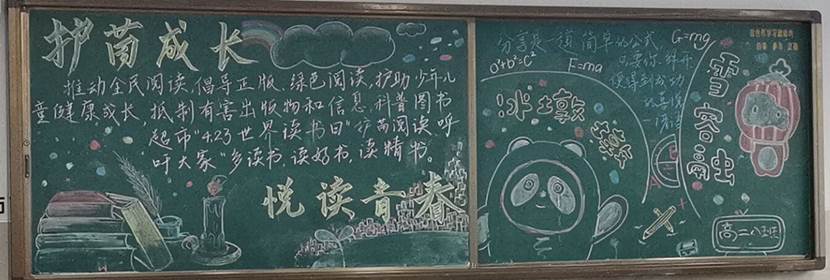 护苗成长
推动全民阅读,倡导正版、绿色阅读,护助少年儿
童健康成长,抵制有害出版物和信息,科普图书
超市"4.23世界读书日"护苗阅读,呼
吁大家"多读书,读好书,读精书。
悦读青春
分享是一道简单的公式,
只要你解开
便得到成功
的喜悦
a²+b²=c²
F=ma
G=mg
冰墩墩
雪容融
高二八班